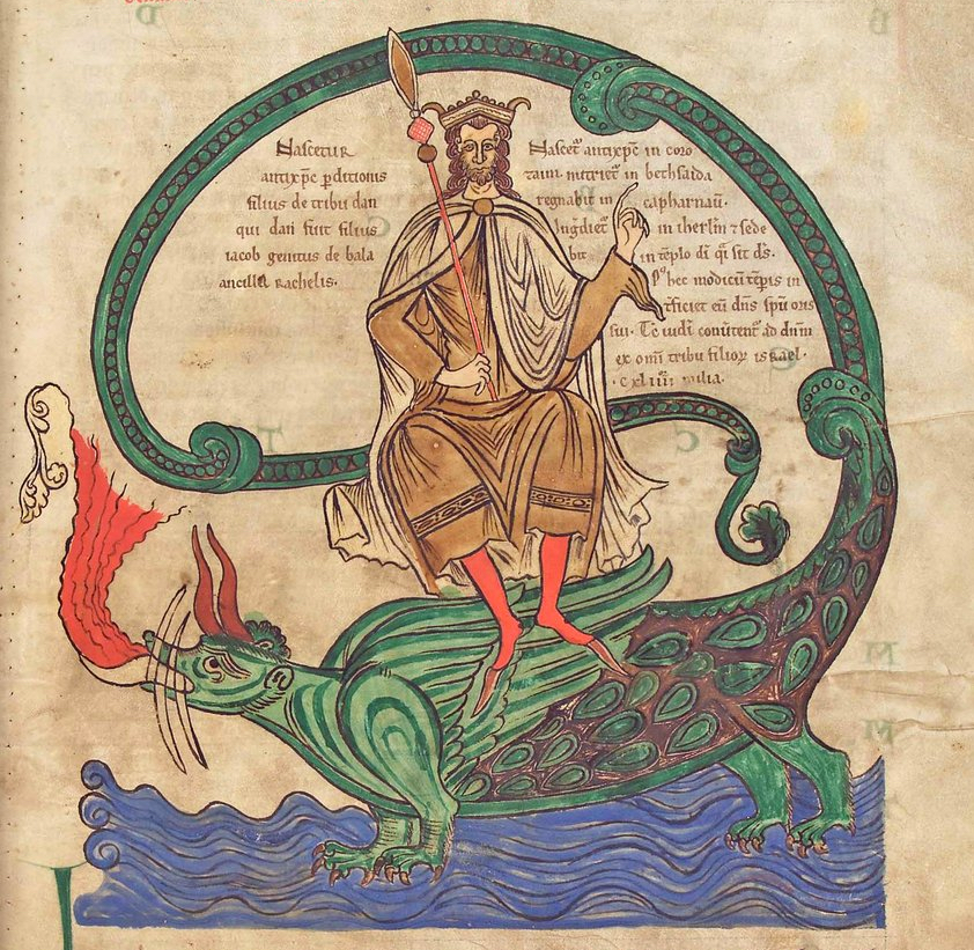 Nascetur
antixp̄c p̄ditionis
filius de tribu dan
qui dan fuit filius
iacob genitus de bala
ancilla Rachelis.
Nascet᷑ antixp̄c in coro
zaim. nutriet᷑ in bethsaida
regnabit in capharnaū.
Ingdiet᷑ in iherłm ⁊ sede
bit in tēplo dī q̄i sit ds̄.
P᷒ hec modicū tēpis in
tficiet eū dn̄s spū oris
sui. Tc̄ iudī conūtent᷑ ad dn̄m
ex om̄i tribu filioꝝ israel.
.c xl iiii milia.